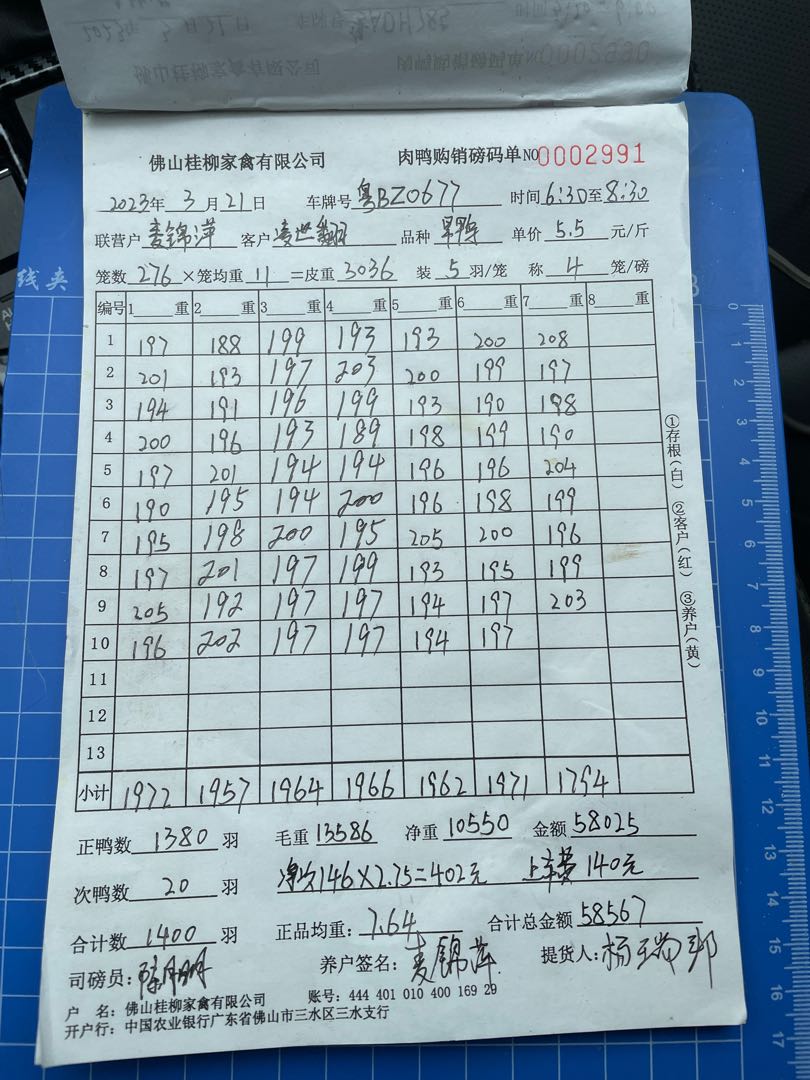 佛山桂柳家禽有限公司 肉鸭购销磅码单 NO 0002991
2023年 3月21日 车牌号 粤BZ0677 时间 6:30至8:30
联营户 麦锦萍 客户 凌世翻 品种 旱鸭 单价 5.5 元/斤
笼数 276 ×笼均重 11 =皮重 3036 装 5 羽/笼 称 4 笼/磅
编号 1 重 2 重 3 重 4 重 5 重 6 重 7 重 8 重
1 197 188 199 193 193 200 208
2 201 193 197 203 200 199 197
3 194 191 196 199 193 190 198
4 200 196 193 189 198 199 190
5 197 201 194 194 196 196 204
6 190 195 194 200 196 198 199
7 195 198 200 195 205 200 196
8 197 201 197 199 193 195 199
9 205 192 197 197 194 197 203
10 196 202 197 197 194 197
11
12
13
小计 1972 1957 1964 1966 1962 1971 1794
①存根(白) ②客户(红) ③养户(黄)
正鸭数 1380 羽 毛重 13586 净重 10550 金额 58025
次鸭数 20 羽 净次146×2.75=402元 上车费 140元
合计数 1400 羽 正品均重: 7.64 合计总金额 58567
司磅员: 养户签名: 麦锦萍 提货人: 杨
户 名: 佛山桂柳家禽有限公司 账号: 444 401 010 400 169 29
开户行: 中国农业银行广东省佛山市三水区三水支行
线夹
0
1
2
3
4
5
6
7
8
9
10
11
12
13
14
15
16
17